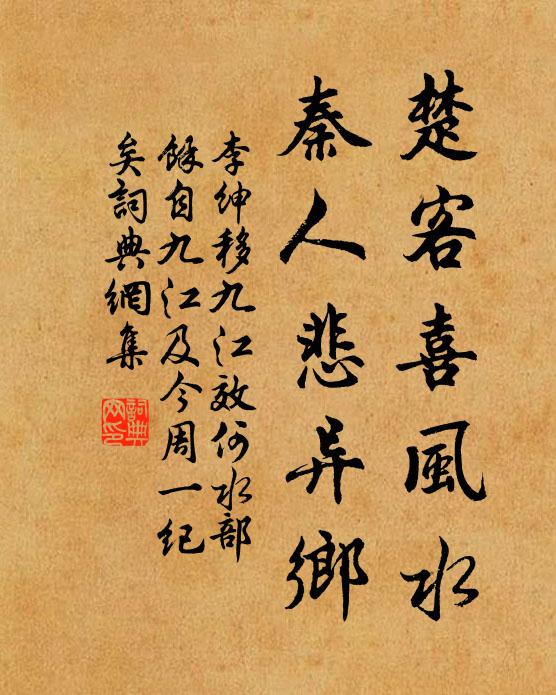 楚客喜風水
秦人悲异鄉
李紳移九江效何水部
餘自九江及今周一紀
矣詞典網集
詞典網印